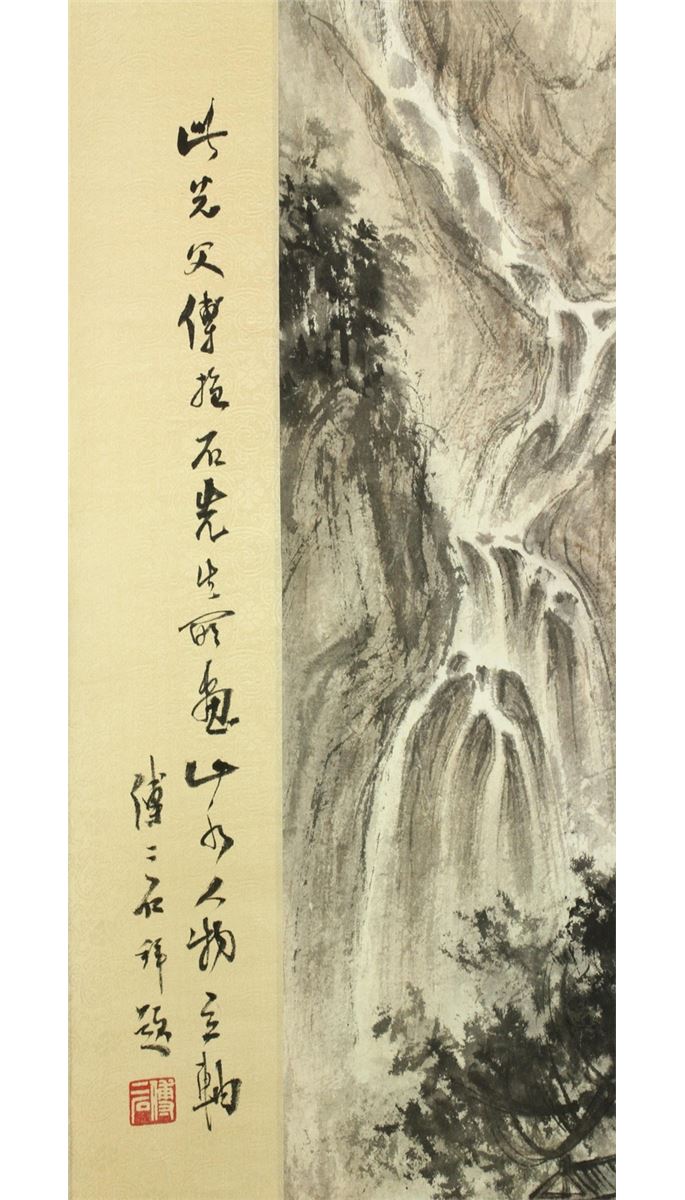 此先父傅抱石先生所畫山水人物立軸
傅二石拜題
傅二石